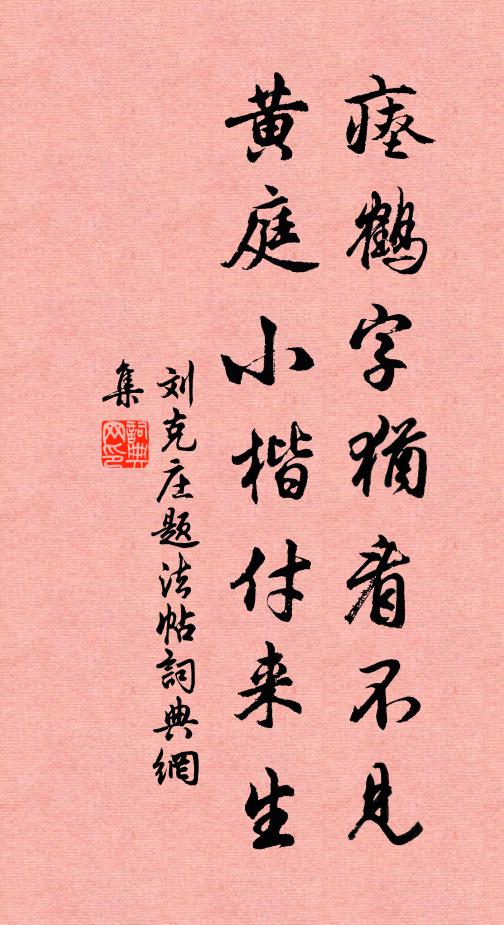 瘗鶴字猶看不見
黄庭小楷付来生
刘克庄题法帖詞典網
集
詞典
网印